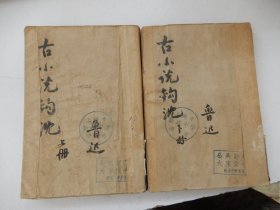 古小说钩沈
上册
鲁迅
古小说钩沈
下册
鲁迅